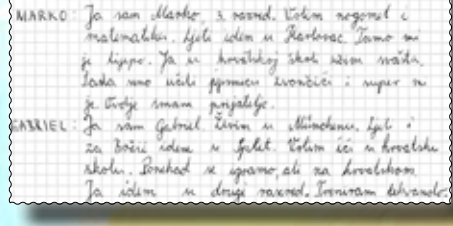 MARKO: Ja sam Marko, 3. razred. Volim nogomet i
matematiku. Ljeti idem u Karlovac. Tamo mi
je lijepo. Ja u hrvatskoj školi učim svašta.
Sada smo učili pjesmicu zvončići i super mi
je. Ovdje imam prijatelje.
GABRIEL: Ja sam Gabriel. Živim u Münchenu. Ljeti i
za Božić idem u Split. Volim ići u hrvatsku
školu. Ponekad se igramo, ali na hrvatskom.
Ja idem u drugi razred. Treniram tekvando.